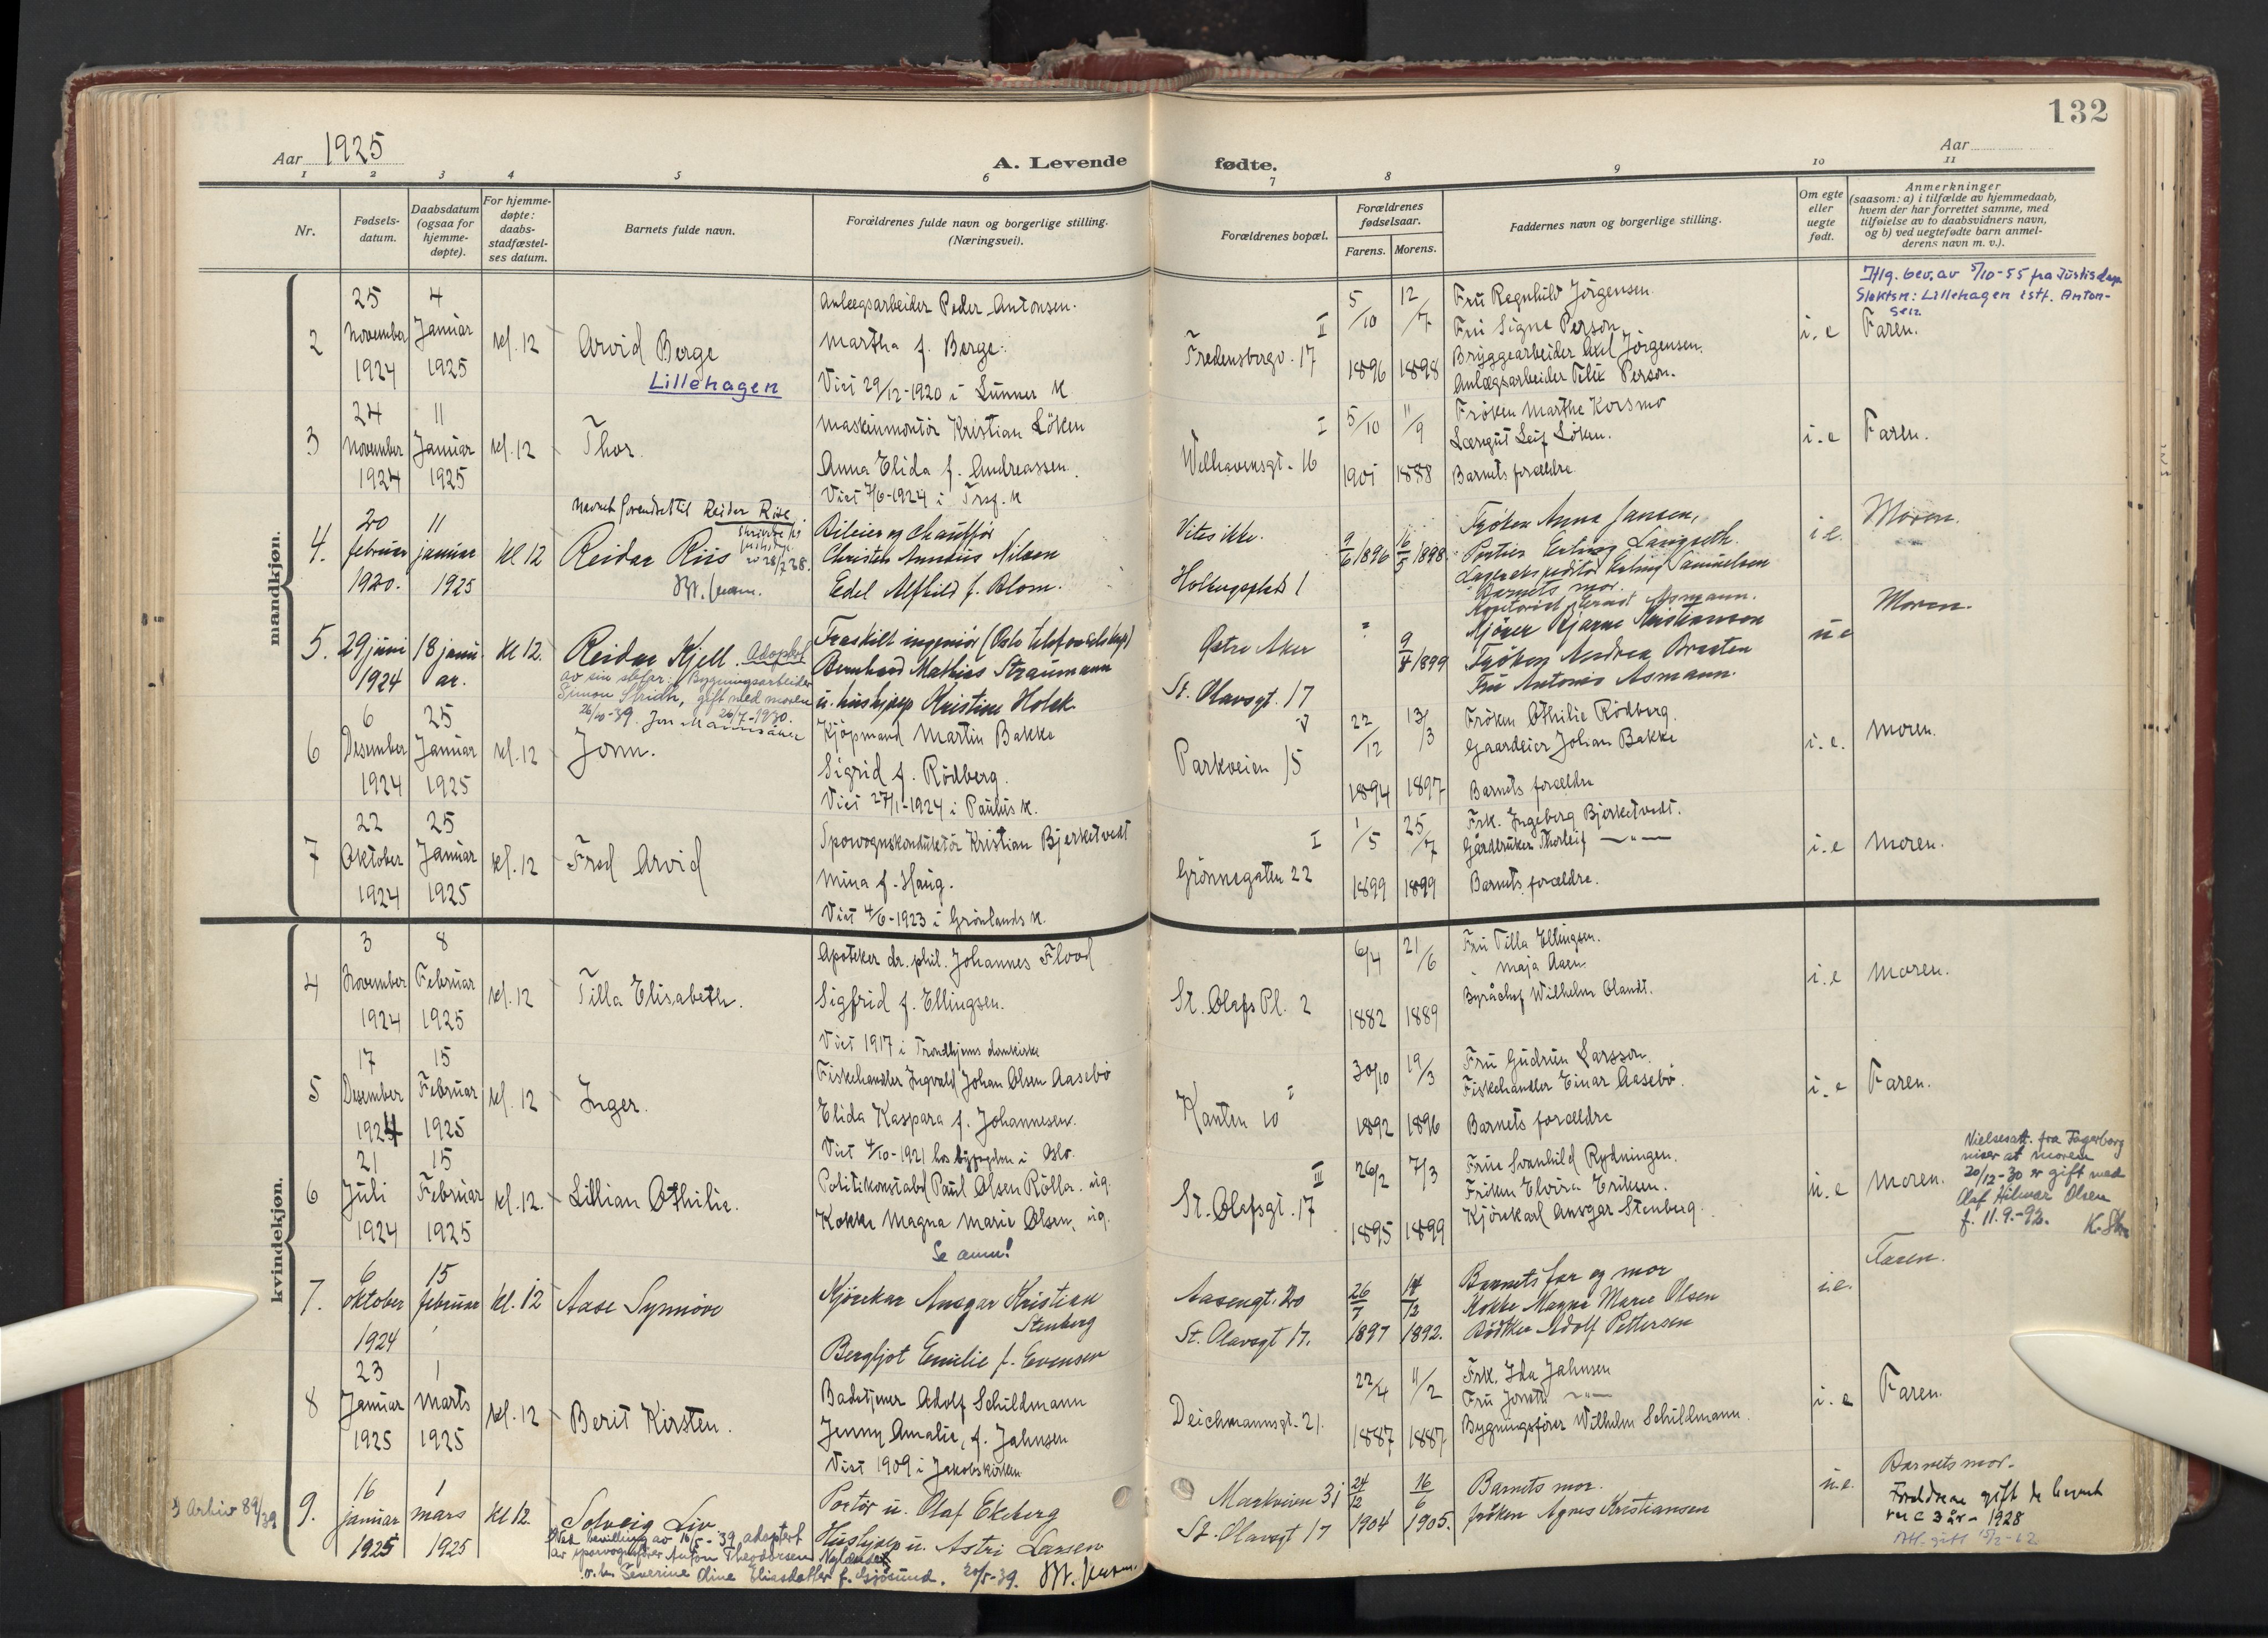 132
Aar 1925
A. Levende fødte.
Aar
1 2 3 4 5 6 7 8 9 10 11
Nr.
Fødsels-
datum.
Daabsdatum
(ogsaa for
hjemme-
døpte).
For hjemme-
døpte:
daabs-
stadfæstel-
ses datum.
Barnets fulde navn.
Forældrenes fulde navn og borgerlige stilling.
(Næringsvei).
Forældrenes bopæl.
Forældrenes
fødselsaar.
Farens. Morens.
Faddernes navn og borgerlige stilling.
Om egte
eller
uegte
født.
Anmerkninger
(saasom: a) i tilfælde av hjemmedaab,
hvem der har forrettet samme, med
tilføielse av to daabsvidners navn,
og b) ved uegtefødte barn anmel-
derens navn m. v.).
mandkjøn.
2
25
November
1924
4
Januar
1925
kl. 12
Arvid Berge
Lillehagen
Anlægsarbeider Peder Antonsen.
Martha f. Berge.
Viet 29/12-1920 i Lunner K
II
Fredensborgv. 17
5/10
1896
12/7
1898
Fru Ragnhild Jörgensen.
Fru Signe Person
Bryggearbeider Axel Jörgensen.
Anlægsarbeider Felix Person.
i. e
Iflg. bev. av 5/10-55 fra Justisdep
Slektsn: Lillehagen istf. Anton-
sen
Faren.
3
24
November
1924
11
Januar
1925
kl. 12
Thor.
Maskinmontör Kristian Löken
Anna Elida f. Andreassen.
Viet 7/6-1924 i Tref. K
I
Welhavensgt. 16
5/10
1901
11/9
1888
Fröken Marthe Korsmo
Leif Löken.
Barnets forældre
i. e
Faren.
4.
20
februar
1920.
11
januar
1925
kl 12
Navnet forandret til Reidar Riise
Reidar Riis
Bileier og chauffør
Christen Nilsen
Edel Alfhild f. Blom.
Vites ikke.
Holbergsplads 1
9/6 1896
16/5 1898.
Frøken Anna Jansen,
Portier Erling Langseth.
Lagerekspeditør Erling Samuelsen
Barnets mor.
i e.
Moren.
5.
29 juni
1924
18 janu-
ar.
kl 12.
Reidar Kjell. Adoptert
av sin stefar: Bygningsarbeider
gift med moren
26/7-1930.
26/10-39.
Fraskilt ingeniør (Oslo telefonselskap)
Bernhard Mathias Straumann
u. hushjelp Kristine Holck
Østre Aker
St. Olavsgt. 17
9/4 1899
Ernst Asmann.
Bjarne Kristiansen
Frøken Andrea Braaten
Fru Antonie Asmann.
u e
Moren.
6
6
Desember
1924
25
Januar
1925
kl. 12
Jonn.
Kjöpmand Martin Bakke
Sigrid f. Rödberg.
Viet 27/1-1924 i Paulus K.
V
Parkveien 15
22/12
1894
13/3
1897
Fröken Othilie Rödberg.
Gaardeier Johan Bakke
Barnets forældre
i. e.
Moren.
7
22
Oktober
1924
25
Januar
1925
kl. 12
Fred Arvid
Sporvognskonduktör Kristian Bjerketvedt
Mina f. Haug.
Viet 4/6-1923 i Grönlands K.
I
Grönnegaten 22
1/5
1899
25/7
1899
Frk. Ingeberg Bjerketvedt.
Gårdbruker Thorleif —"—
Barnets forældre.
i. e
Moren.
kvindekjøn.
4
3
November
1924
8
Februar
1925
kl. 12
Tilla Elisabeth.
Apoteker dr. phil. Johannes Flood
Sigfrid f. Ellingsen.
Viet 1917 i Trondhjems domkirke
St. Olafs Pl. 2
6/4
1882
21/6
1889
Fru Tilla Ellingsen.
" Maja Aasen
Byråchef Wilhelm Olandt.
i. e
Moren.
5
17
Desember
1924
15
Februar
1925
kl. 12
Inger.
Fiskehandler Ingvald Johan Olsen Aasebö
Elida Kaspara f. Johannesen.
Viet 4/10-1921 hos byfogden i Oslo.
I
Kanten 10
30/10
1892
19/3
1896
Fru Gudrun Larsson.
Fiskehandler Einar Aasebö.
Barnets forældre
i. e
Faren.
6
21
Juli
1924
15
Februar
1925
kl. 12.
Lillian Othilie.
Politikonstabel Paul Olsen Rölla. ug.
Kokke Magna Marie Olsen, ug.
Se anm!
III
St. Olafsgt. 17
26/2
1895
7/3
1899
Frue Svanhild Rydningen.
Fröken Elvira Eriksen.
Kjörekarl Ansgar Stenberg
u. e
Moren.
Vielsesatt. fra Fagerborg
viser at moren
20/12-30 er gift med
Olaf Hilmar Olsen
f. 11.9.-92.
7.
6
oktober
1924
15
februar
kl. 12
Aase Synnöve
Kjörekar Ansgar Kristian
Stenberg
Bergljot Emilie f. Evensen
Aasengt. 20
St. Olavsgt 17.
26/7
1897
14/12
1892.
Barnets far og mor
Kokke Magna Marie Olsen
Bödtker Adolf Pettersen
i.e.
Faren.
8
23
Januar
1925
1
Marts
1925
kl. 12
Berit Kirsten.
Badetjener Adolf Schildmann
Jenny Amalie, f. Jahnsen
Viet 1909 i Jakobskirken
Deichmannsgt. 21.
22/4
1887
11/2
1887
Frk. Ida Jahnsen
Fru —"—
Bygningsfører Wilhelm Schildmann.
i. e
Faren.
Arkiv 89/39
9.
16
januar
1925
1
mars
1925
kl 12.
Solveig Liv
Ved bevilling av 16/5-39 adoptert
av sporvognsfører Anton Theodorsen Nylænde
o. h. Severine Oline Eliasdatter f. Gjøsund. 20/5-39.
Portör u. Olaf Ekeberg
Hushjelp u. Astri Larsen
Markveien 31
St. Olavsgt 17
24/12
1904
16/6
1905.
Barnets mor.
frøken Agnes Kristiansen
u.e.
Barnets mor.
Foreldrene gift
3 år - 1928